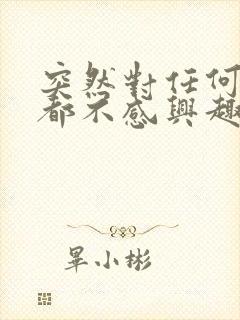 突然對任何
都不感興趣
畢小彬